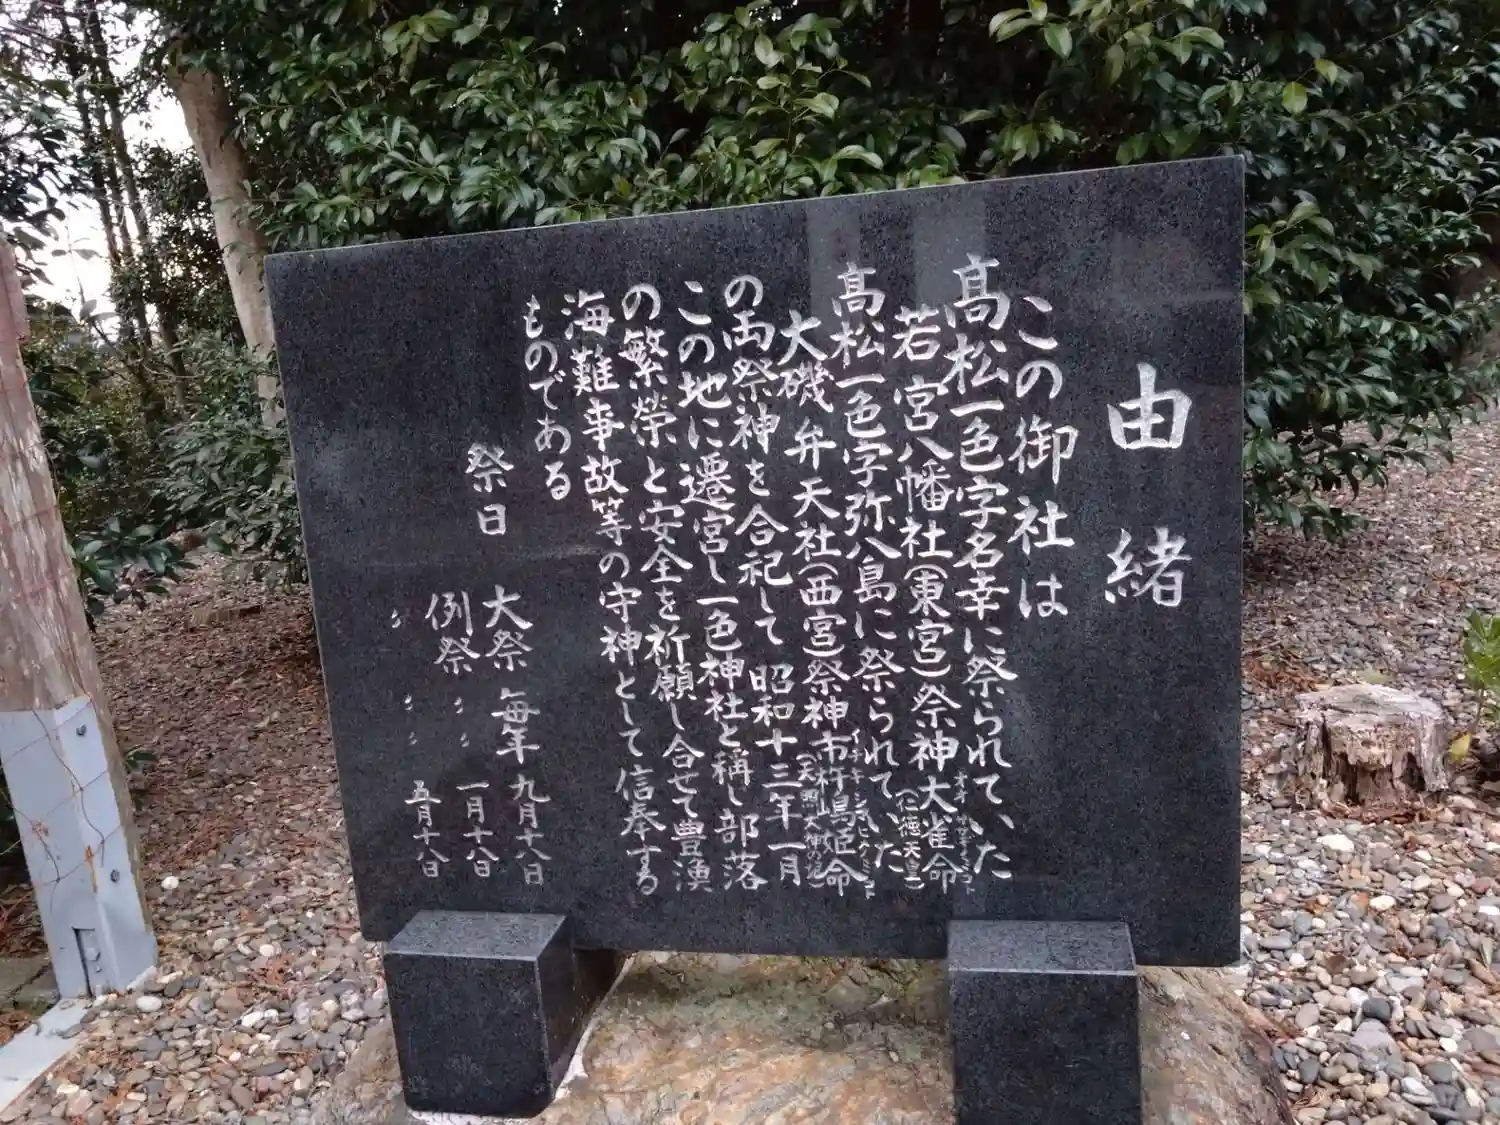 由緒
この御社は
髙松一色字名幸に祭られていた
若宮八幡社(東宮)祭神大雀命
(仁徳天皇)
髙松一色字弥八島に祭られていた
大磯弁天社(西宮)祭神市杵嶋姫命
の両祭神を合祀して昭和十三年一月
この地に遷宮し一色神社と稱し部落
の繁榮と安全を祈願し合せて豊漁
海難事故等の守神として信奉する
ものである
祭日 大祭 毎年 九月十八日
例祭 〃 一月十八日
〃 〃 五月十八日